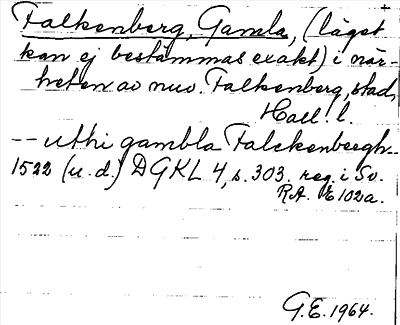 Falkenberg, Gamla, (läget
kan ej bestämmas exakt) i när-
heten av nuv. Falkenberg, stad,
Hall. l.
-- uthi gambla Falckenbergh --
1522 (u. d.) DGKL 4, s. 303. reg. i Sv.
RA. E 102a.
G.E. 1964.